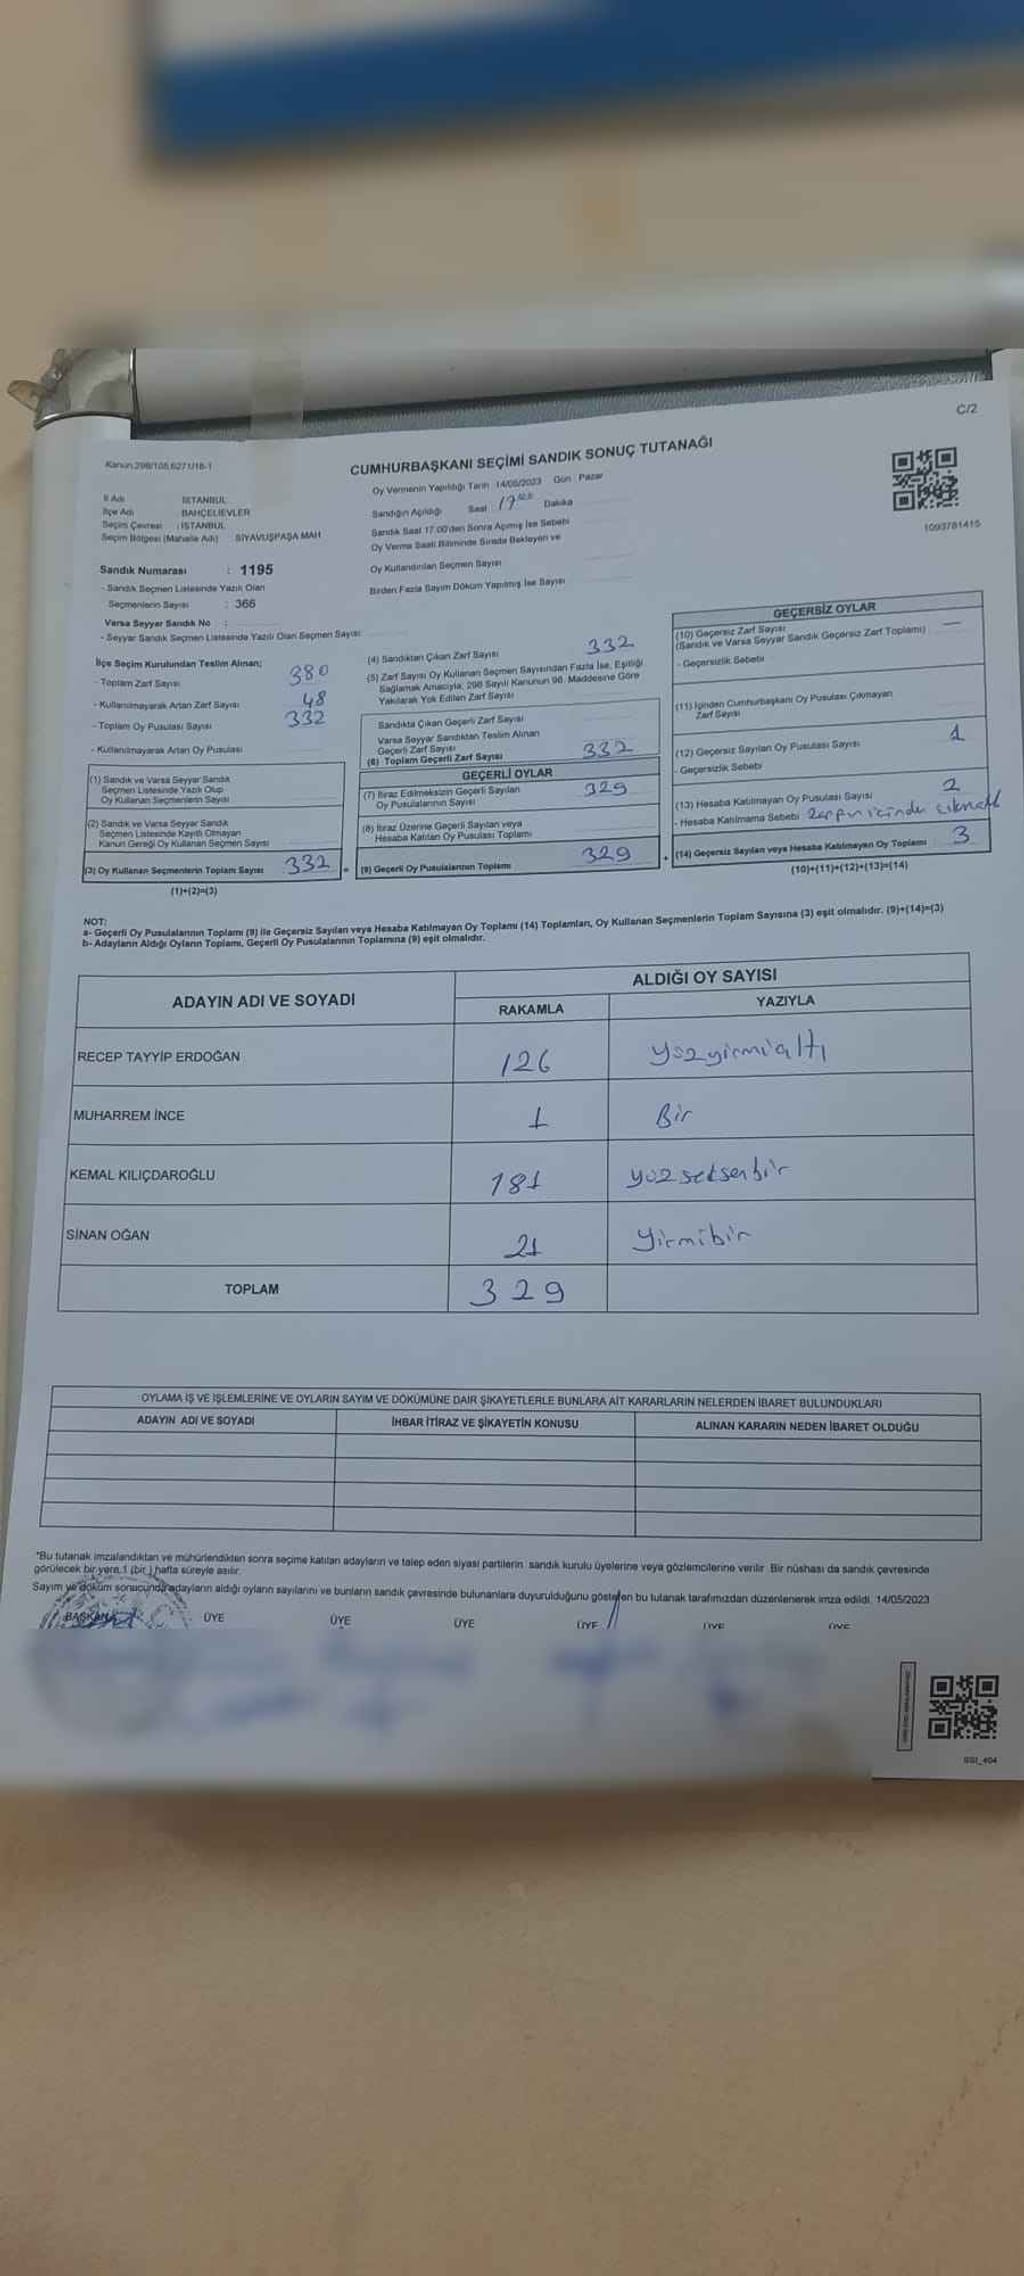 C/2
Kanun 298/105,6271/16-1
CUMHURBAŞKANI SEÇİMİ SANDIK SONUÇ TUTANAĞI
Oy Vermenin Yapıldığı Tarih 14/05/2023 Gün : Pazar
Sandığın Açıldığı Saat 17 Dakika
Sandık Saat 17.00'den Sonra Açımış İse Sebebi
Oy Verme Saati Bitiminde Sırada Bekleyen ve
Oy Kullandırılan Seçmen Sayısı
Birden Fazla Sayım Döküm Yapılmış İse Sayısı
1093781415
İl Adı İSTANBUL
İlçe Adı BAHÇELİEVLER
Seçim Çevresi : İSTANBUL
Seçim Bölgesi (Mahalle Adı) SİYAVUŞPAŞA MAH
Sandık Numarası : 1195
- Sandık Seçmen Listesinde Yazılı Olan
Seçmenlerin Sayısı : 366
Varsa Seyyar Sandık No :
- Seyyar Sandık Seçmen Listesinde Yazılı Olan Seçmen Sayısı
İlçe Seçim Kurulundan Teslim Alınan;
- Toplam Zarf Sayısı 380
- Kullanılmayarak Artan Zarf Sayısı 48
- Toplam Oy Pusulası Sayısı 332
- Kullanılmayarak Artan Oy Pusulası
(1) Sandık ve Varsa Seyyar Sandık
Seçmen Listesinde Yazılı Olup
Oy Kullanan Seçmenlerin Sayısı
(2) Sandık ve Varsa Seyyar Sandık
Seçmen Listesinde Kayıtlı Olmayan
Kanun Gereği Oy Kullanan Seçmen Sayısı
(3) Oy Kullanan Seçmenlerin Toplam Sayısı 332 =
(1)+(2)=(3)
(4) Sandıktan Çıkan Zarf Sayısı 332
(5) Zarf Sayısı Oy Kullanan Seçmen Sayısından Fazla İse, Eşitliği
Sağlamak Amacıyla, 298 Sayılı Kanunun 98. Maddesine Göre
Yakılarak Yok Edilen Zarf Sayısı
Sandıkta Çıkan Geçerli Zarf Sayısı
Varsa Seyyar Sandıktan Teslim Alınan
Geçerli Zarf Sayısı
(6) Toplam Geçerli Zarf Sayısı 332
GEÇERLİ OYLAR
(7) İtiraz Edilmeksizin Geçerli Sayılan
Oy Pusulalarının Sayısı 329
(8) İtiraz Üzerine Geçerli Sayılan veya
Hesaba Katılan Oy Pusulası Toplamı
(9) Geçerli Oy Pusulalarının Toplamı 329 +
GEÇERSİZ OYLAR
(10) Geçersiz Zarf Sayısı
(Sandık ve Varsa Seyyar Sandık Geçersiz Zarf Toplamı) —
- Geçersizlik Sebebi
(11) İçinden Cumhurbaşkanı Oy Pusulası Çıkmayan
Zarf Sayısı
(12) Geçersiz Sayılan Oy Pusulası Sayısı 1
- Geçersizlik Sebebi
(13) Hesaba Katılmayan Oy Pusulası Sayısı 2
- Hesaba Katılmama Sebebi
(14) Geçersiz Sayılan veya Hesaba Katılmayan Oy Toplamı 3
(10)+(11)+(12)+(13)=(14)
NOT:
a- Geçerli Oy Pusulalarının Toplamı (9) ile Geçersiz Sayılan veya Hesaba Katılmayan Oy Toplamı (14) Toplamları, Oy Kullanan Seçmenlerin Toplam Sayısına (3) eşit olmalıdır. (9)+(14)=(3)
b- Adayların Aldığı Oyların Toplamı, Geçerli Oy Pusulalarının Toplamına (9) eşit olmalıdır.
ADAYIN ADI VE SOYADI ALDIĞI OY SAYISI
RAKAMLA YAZIYLA
RECEP TAYYİP ERDOĞAN 126 yüzyirmialtı
MUHARREM İNCE 1 Bir
KEMAL KILIÇDAROĞLU 181 yüzseksenbir
SİNAN OĞAN 21 yirmibir
TOPLAM 329
OYLAMA İŞ VE İŞLEMLERİNE VE OYLARIN SAYIM VE DÖKÜMÜNE DAİR ŞİKAYETLERLE BUNLARA AİT KARARLARIN NELERDEN İBARET BULUNDUKLARI
ADAYIN ADI VE SOYADI İHBAR İTİRAZ VE ŞİKAYETİN KONUSU ALINAN KARARIN NEDEN İBARET OLDUĞU
*Bu tutanak imzalandıktan ve mühürlendikten sonra seçime katılan adayların ve talep eden siyasi partilerin sandık kurulu üyelerine veya gözlemcilerine verilir. Bir nüshası da sandık çevresinde
görülecek bir yere 1 (bir) hafta süreyle asılır.
Sayım ve döküm sonucunda adayların aldığı oyların sayılarını ve bunların sandık çevresinde bulunanlara duyurulduğunu gösteren bu tutanak tarafımızdan düzenlenerek imza edildi. 14/05/2023
BAŞKAN ÜYE ÜYE ÜYE ÜYE ÜYE ÜYE
SSI_404